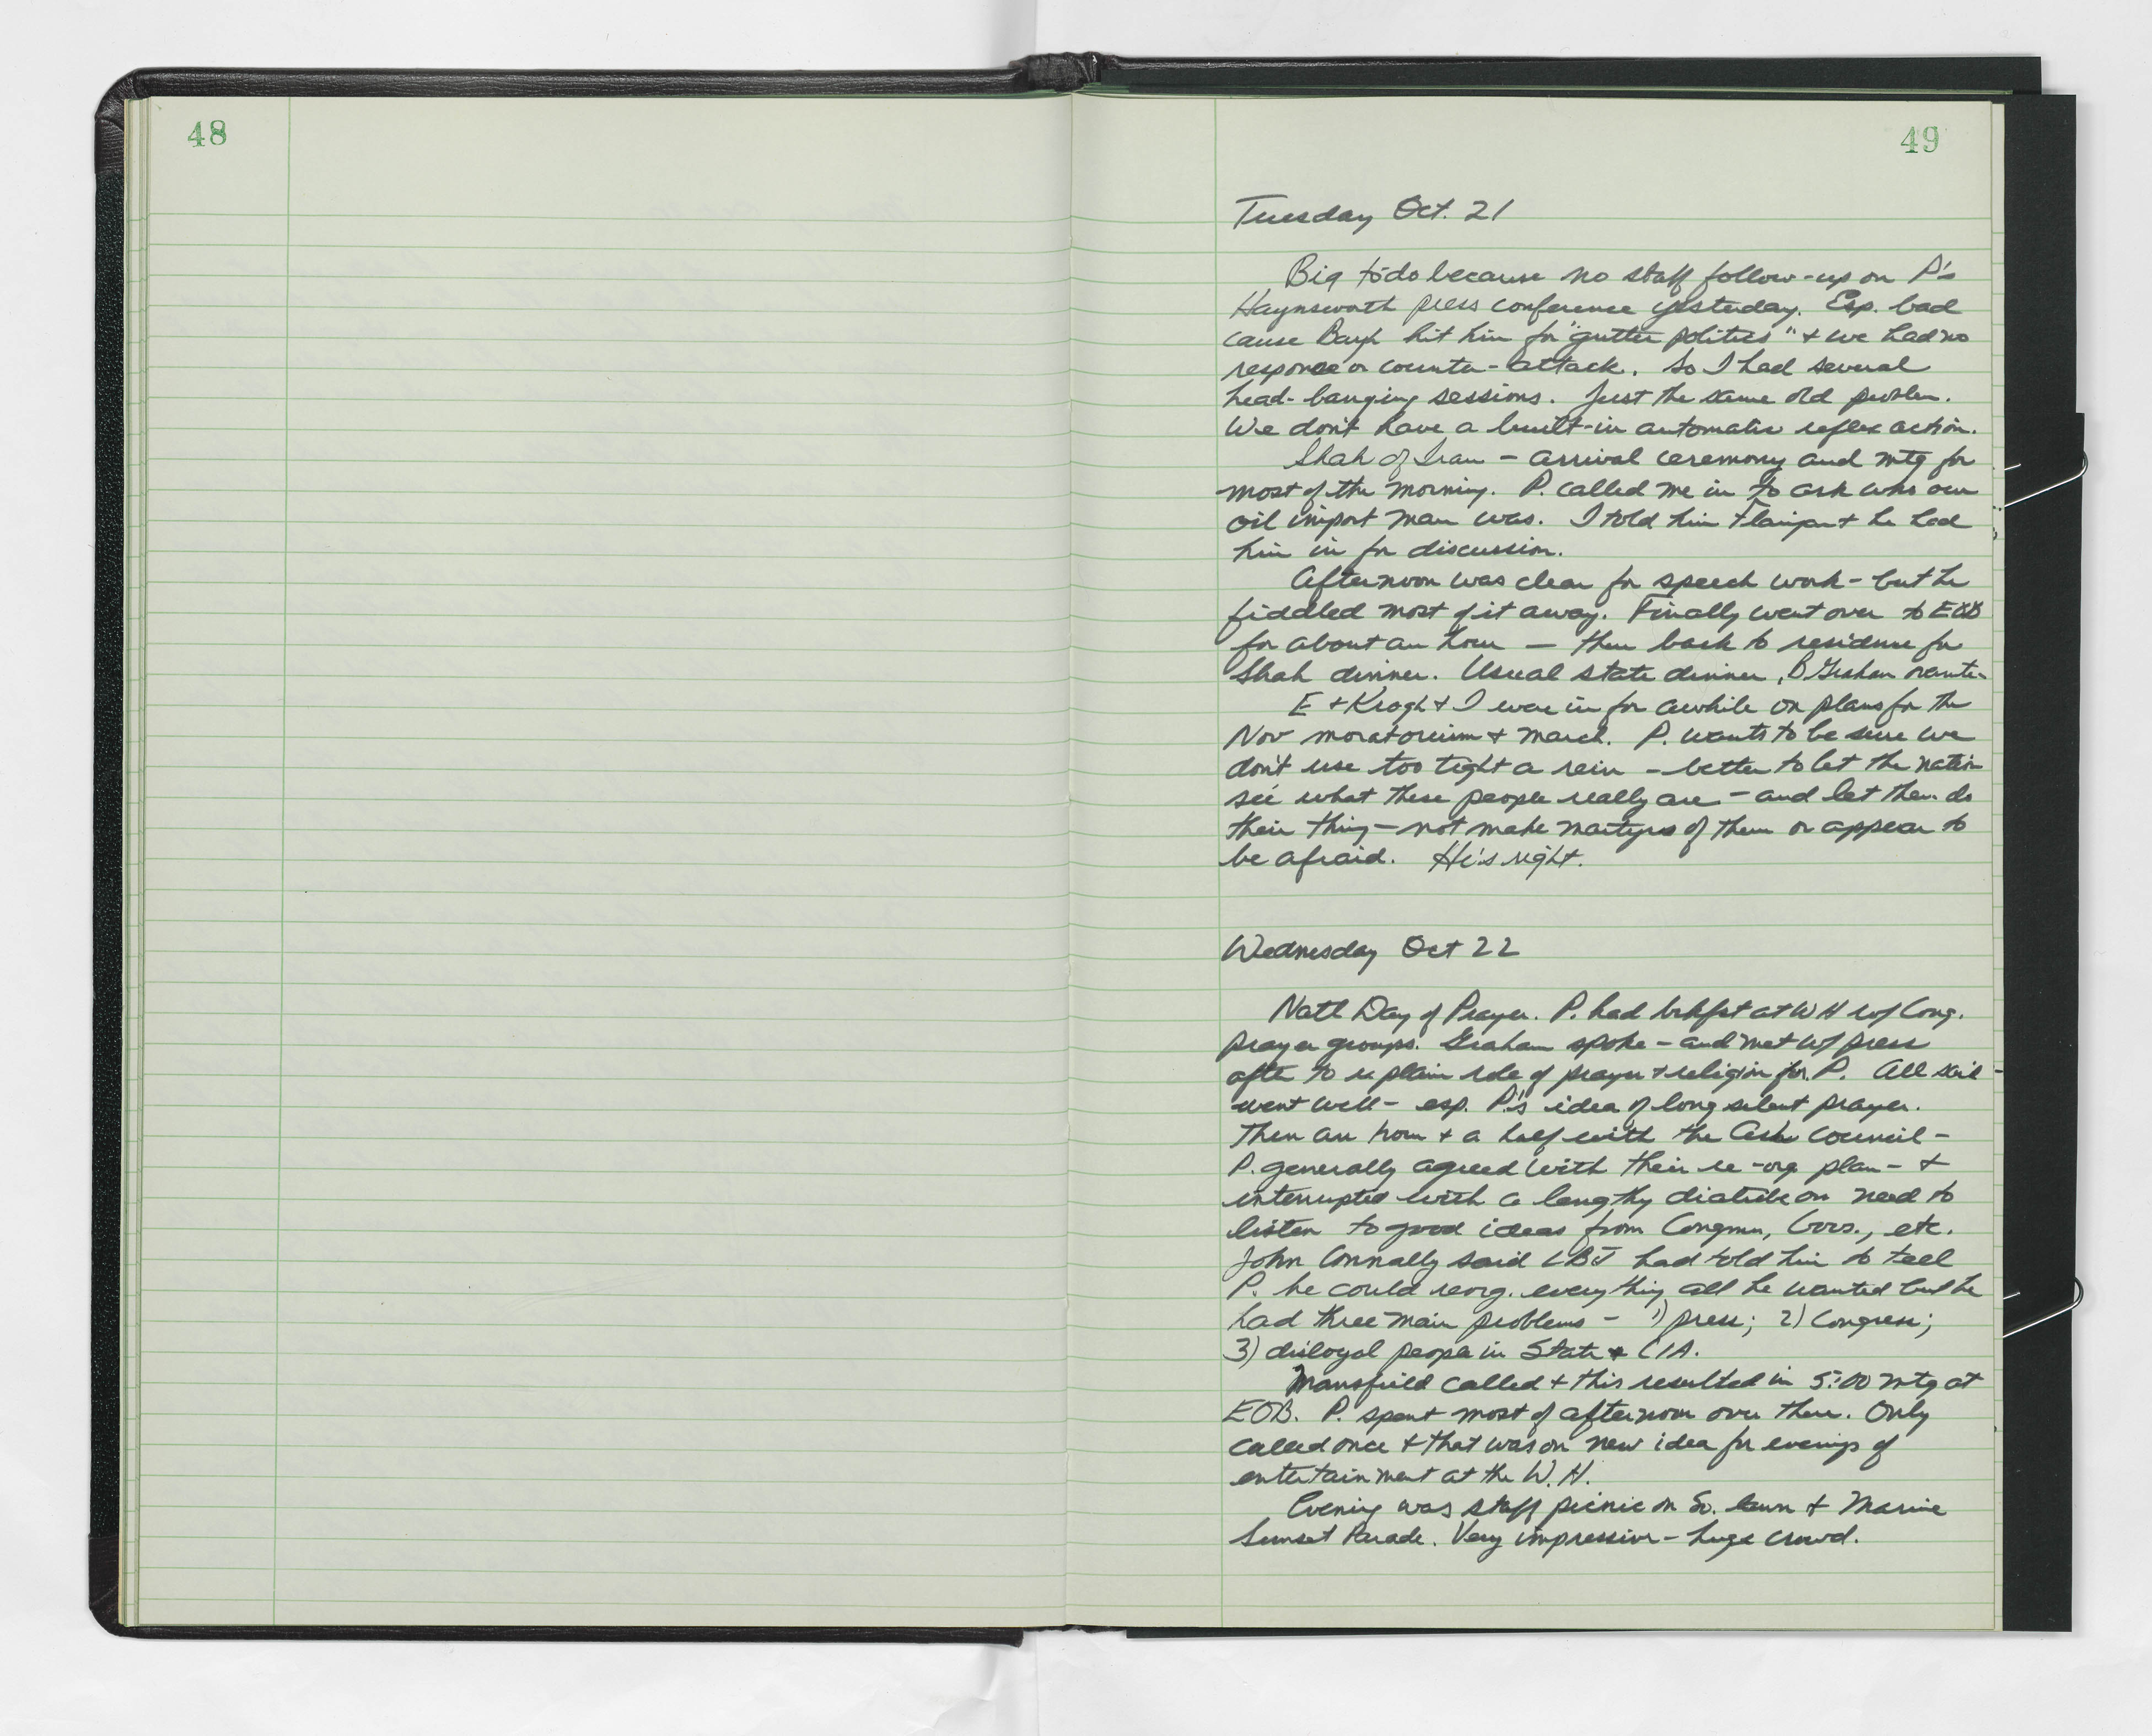 48
49
Tuesday Oct. 21
Big to do because no staff follow-up on P's
Haynsworth press conference yesterday. Esp. bad
cause Bayh hit him for "gutter politics" + we had no
response or counter-attack. So I had several
head-banging sessions. Just the same old problem.
We don't have a built-in automatic reflex action.
Shah of Iran - arrival ceremony and mtg for
most of the morning. P. called me in to ask who our
oil import man was. I told him Flanigan + he had
him in for discussion.
Afternoon was clear for speech work - but he
fiddled most of it away. Finally went over to EOB
for about an hour — then back to residence for
Shah dinner. Usual state dinner, B Graham
E + Krogh + I were in for awhile on plans for the
Nov moratorium + march. P. wants to be sure we
don't use too tight a rein - better to let the nation
see what these people really are - and let them do
their thing - not make martyrs of them or appear to
be afraid. He's right.
Wednesday Oct 22
Natl Day of Prayer. P. had brkfst at WH w/ Cong.
prayer groups. Graham spoke - and met w/ press
after to explain role of prayer + religion for P. All said
went well - esp. P's idea of long silent prayer.
Then an hour + a half with the Ash Council -
P. generally agreed with their re-org plan - +
interrupted with a lengthy diatribe on need to
listen to good ideas from Congmn, Govs., etc.
John Connally said LBJ had told him to tell
P. he could reorg. everything all he wanted but he
had three main problems - 1) press; 2) Congress;
3) disloyal people in State + CIA.
Mansfield called + this resulted in 5:00 mtg at
EOB. P. spent most of afternoon over there. Only
called once + that was on new idea for evenings of
entertainment at the W.H.
Evening was staff picnic on So. lawn + Marine
Sunset Parade. Very impressive - huge crowd.